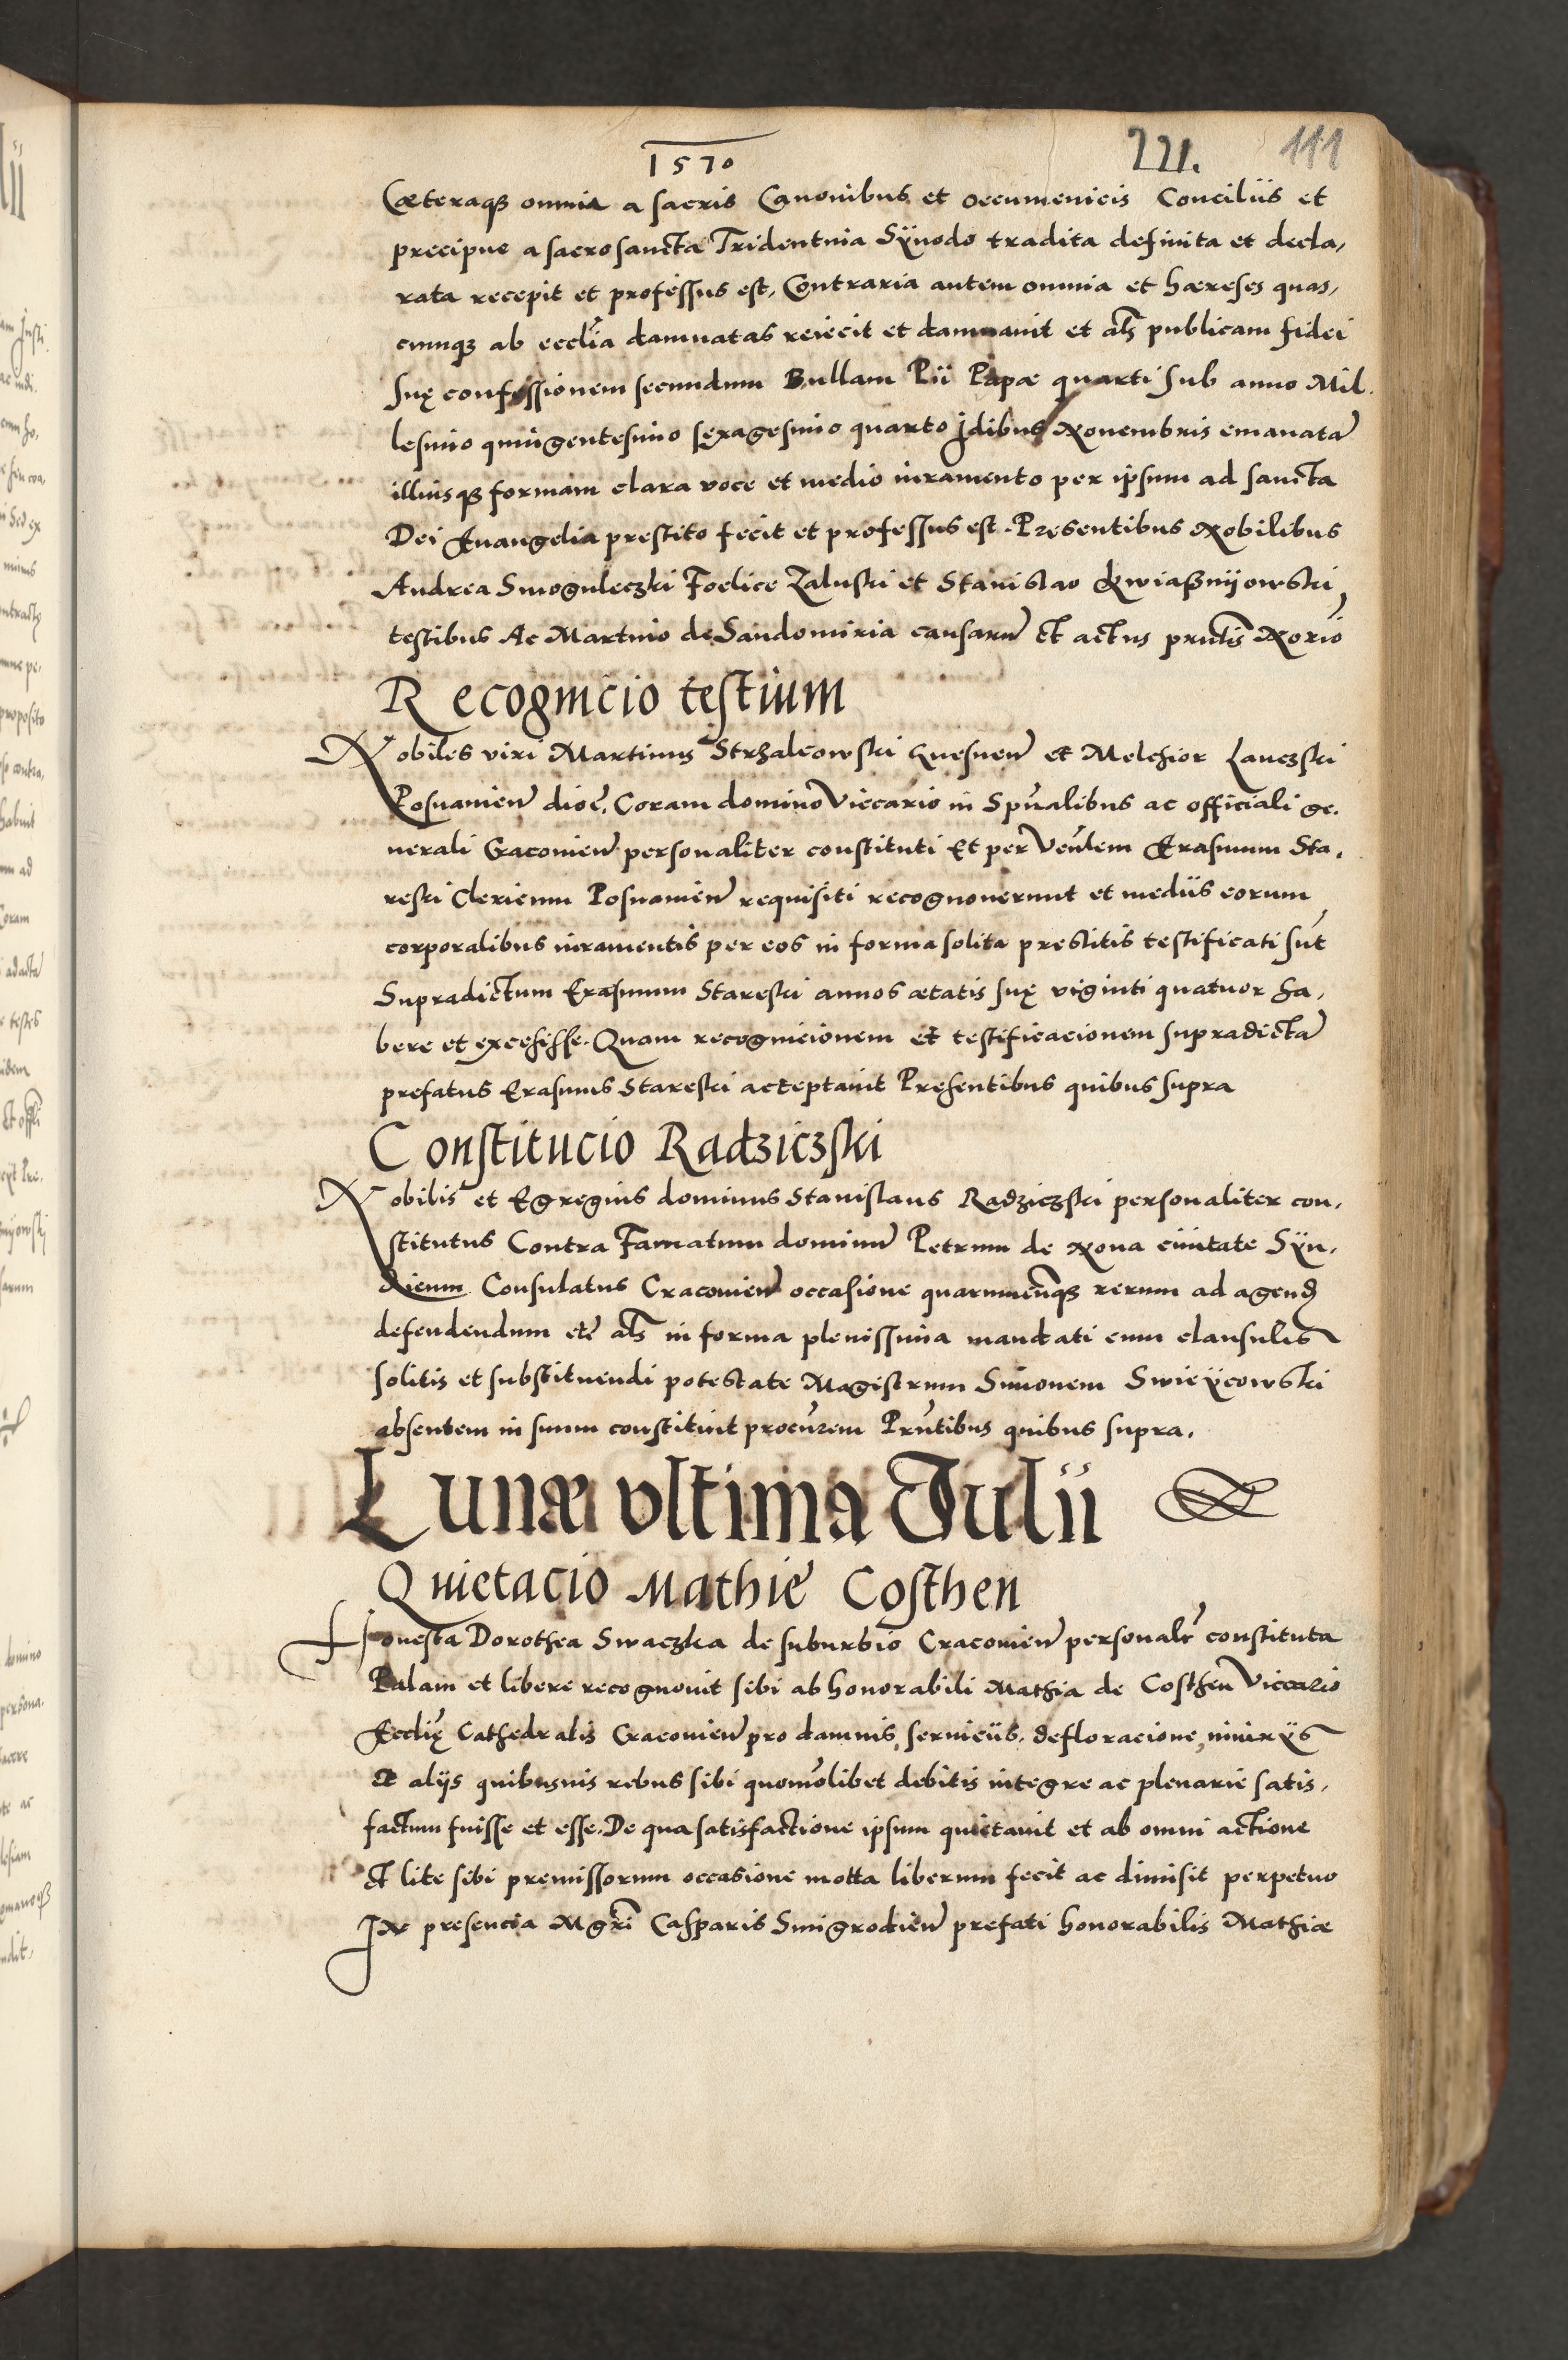 1570 221. 111
Cæteraqȝ omnia a sacris Canonibus et oecumenicis Conciliis et
precipue a sacrosancta Tridentina Sÿnodo tradita definita et decla,
rata recepit et professus est, Contraria autem omnia et hæreses quas,
cumqȝ ab eccl̃ia damnatas reiecit et damnauit et al̃s publicam fidei
suę confessionem secundum Bullam Pii Papæ quarti sub anno Mil.
lesimo quingentesimo sexagesimo quarto Jdibus Nouembris emanatã
illiusqȝ formam clara voce et medio iuramento per ipsum ad sancta
Dei Euangelia prestito fecit et professus est. Presentibus Nobilibus
Andrea Smoguleczki Foelice Zaluski et Stanislao Kwiaßnijowski
testibus Ac Martino de Sandomiria causarũ et actus pñtis Norio
Recognicio testium
Nobiles viri Martinus Strzalcowski Gnesneñ et Melchior Lanczski
Posnanieñ dioc̃. Coram domino Viccario in Spũalibus ac officiali ge.
nerali Cracouieñ personaliter constituti Et per Veñlem Erasmum Sta,
reski Clericum Posnanieñ requisiti recognouerunt et mediis eorum
corporalibus iuramentis per eos in forma solita prestitis testificati sũt
Supradictum Erasmum Stareski annos ætatis suę viginti quatuor ha,
bere et excessisse. Quam recognicionem et testificacionem supradictã
prefatus Erasmus Stareski acceptauit Presentibus quibus supra
Constitucio Radziczski
Nobilis et Egregius dominus Stanislaus Radziczski personaliter con,
stitutus Contra Famatum dominũ Petrum de Noua ciuitate Sÿn,
dicum Consulatus Cracouieñ occasione quarumcũqȝ rerum ad agend̃
defendendum etc̃ al̃s in forma plenissima mandati cum clausulis
solitis et substituendi potestate Magistrum Simonem Swieÿcowski
absentem in suum constituit procũrem Pñtibus quibus supra.
Lunæ vltima Julii
Quietacio Mathie Costhen
Honesta Dorothea Swaczka de suburbio Cracouieñ personalr̃ constituta
Palam et libere recognouit sibi ab honorabili Mathia de Costhen Viccario
Eccl̃ię Cathedralis Cracouieñ pro damnis, seruiciis. defloracione, iniurÿs
Et alijs quibusuis rebus sibi quomõlibet debitis integre ac plenarie satis,
factum fuisse et esse. De qua satisfactione ipsum quietauit et ab omni actione
Et lite sibi premissorum occasione motta liberum fecit ac dimisit perpetuo
JN presencia Mgr̃i Casparis Smigrodieñ prefati honorabilis Mathiæ